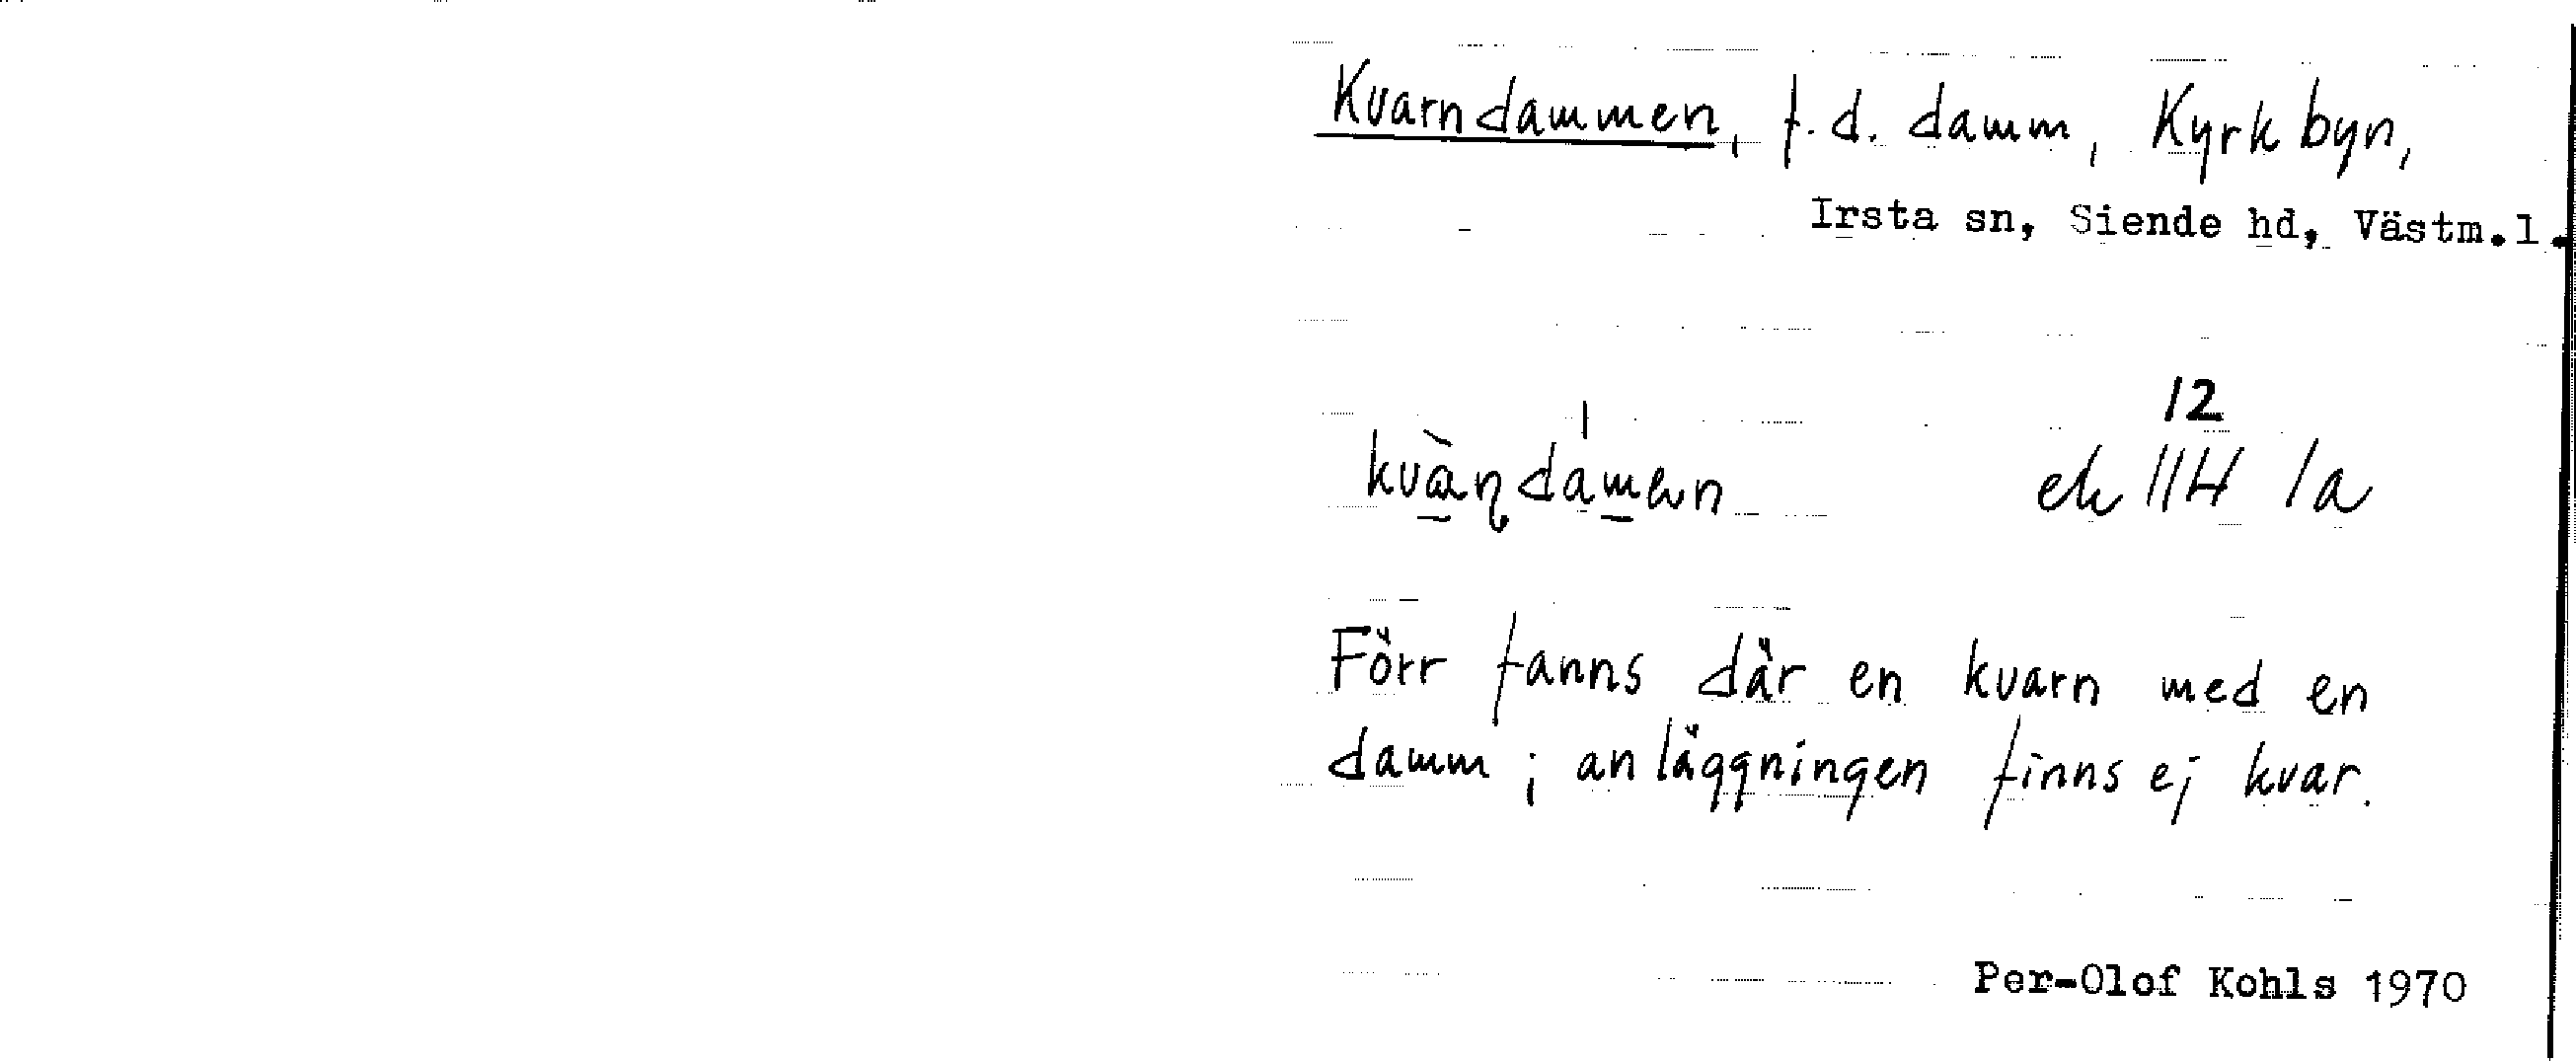 Kvarndammen, f.d. damm, Kyrkbyn,
Irsta sn, Siende hd, Västm.l.
12
ek 114 1a
Förr fanns där en kvarn med en
damm; anläggningen finns ej kvar.
Per-Olof Kohls 1970